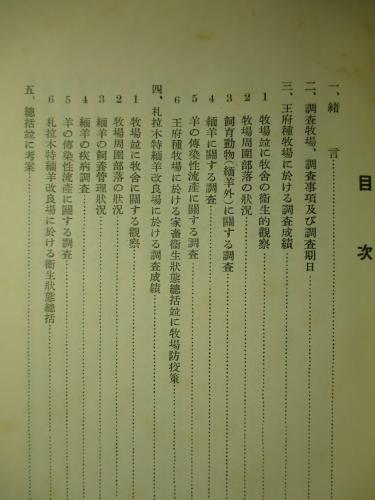 目次
一、緒言
二、調査牧場、調査事項及び調査期日
三、王府種牧場に於ける調査成績
1 牧場竝に牧舎の衞生的觀察
2 牧場周圍部落の狀況
3 飼育動物(緬羊外)に關する調査
4 緬羊に關する調査
5 羊の傳染性流産に關する調査
6 王府種牧場に於ける家畜衞生狀態總括竝に牧場防疫策
四、札拉木特緬羊改良場に於ける調査成績
1 牧場竝に牧舎に關する觀察
2 牧場周圍部落の狀況
3 緬羊の飼養管理狀況
4 緬羊の疾病調査
5 羊の傳染性流産に關する調査
6 札拉木特緬羊改良場に於ける衞生狀態總括
五、總括竝に考案